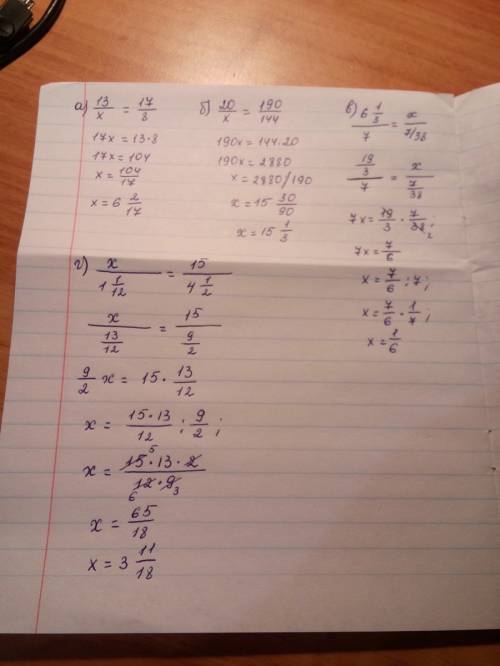 а) 13/x = 17/8
17x = 13·8
17x = 104
x = 104/17
x = 6 2/17
б) 20/x = 190/144
190x = 144·20
190x = 2880
x = 2880/190
x = 15 30/90
x = 15 1/3
в) 6 1/3 / 7 = x / 7/38
19/3 / 7 = x / 7/38
7x = 19/3 · 7/38 2;
7x = 7/6
x = 7/6 : 7;
x = 7/6 · 1/7;
x = 1/6
г) x / 1 1/12 = 15 / 4 1/2
x / 13/12 = 15 / 9/2
9/2 x = 15 · 13/12
x = 15·13/12 : 9/2;
x = 15 5 ·13·2 / 6 12·9 3
x = 65/18
x = 3 11/18